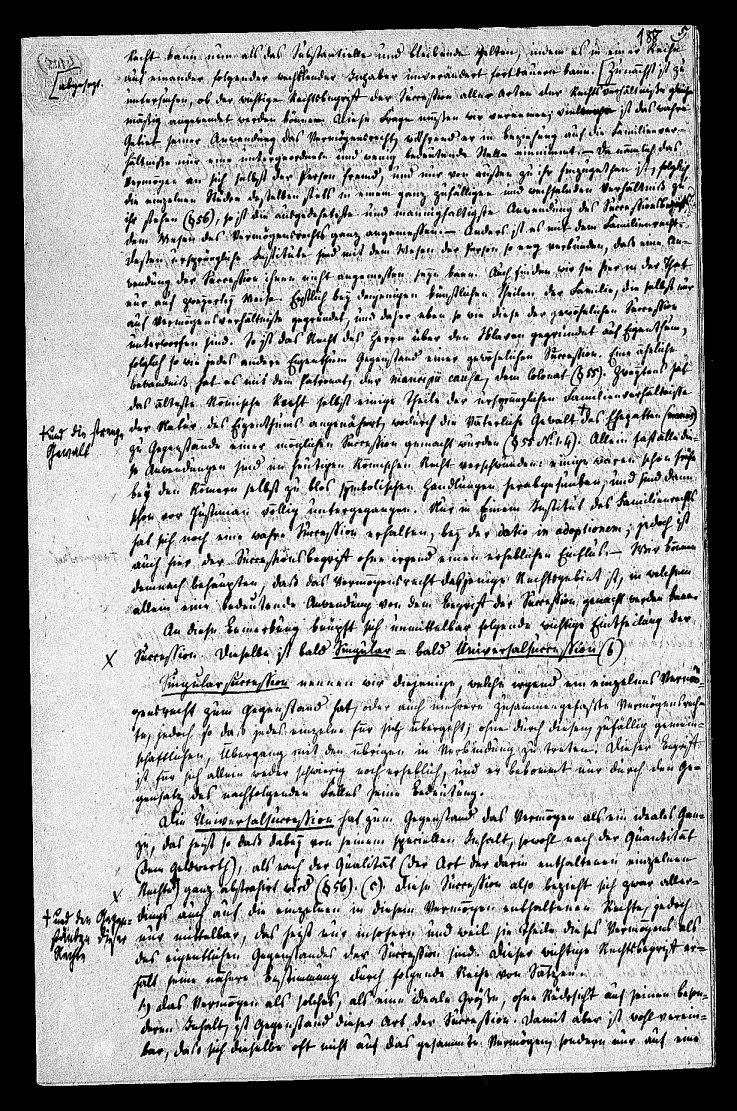 187 5
Recht kann nun als das Substantielle und bleibende gelten, indem es in einer Reihe
auf einander folgender wechselnder Inhaber unverändert fortdauern kann. [Zunächst ist zu
untersuchen, ob der wichtige Rechtsbegriff der Succession allen Arten der Rechtsverhältnisse gleich-
mäßig angewendet werden könne. Diese Frage müssen wir verneinen; vielmehr ist das wahre
Gebiet seiner Anwendung das Vermögensrecht, während er in Beziehung auf die Familienver-
hältnisse nur eine untergeordnete und wenig bedeutende Stelle einnimmt. – Da nämlich das
Vermögen an sich selbst der Person fremd, und nur von außen zu ihr hinzugethan ist, folglich
die einzelnen Stücke desselben stets in einem ganz zufälligen und wechselnden Verhältniß zu
ihr stehen (§ 56), so ist die ausgedehnteste und mannigfaltigste Anwendung des Successionsbegriffs
dem Wesen des Vermögensrechts ganz angemessen. – Anders ist es mit dem Familienrecht.
Dessen ursprüngliche Institute sind mit dem Wesen der Person so eng verbunden, daß eine An-
wendung der Succession ihnen nicht angemessen seyn kann. Auch finden wir sie hier in der That
nur auf zweyerley Weise. Erstlich bey denjenigen künstlichen Theilen der Familie, die selbst nur
auf Vermögensverhältnisse gegründet, und daher eben so wie diese der gewöhnlichen Succession
unterworfen sind. So ist das Recht des Herrn über den Sklaven gegründet auf Eigenthum,
folglich so wie jedes andere Eigenthum Gegenstand einer gewöhnlichen Succession. Eine ähnliche
Bewandniß hat es mit dem Patronat, der mancipii causa, dem Colonat (§ 55). Zweytens hat
das älteste Römische Recht selbst einige Theile der ursprünglichen Familienverhältnisse
der Natur des Eigenthums angenähert, wodurch die Väterliche Gewalt † des Ehegatten (manus)
zu Gegenstände einer möglichen Succession gemacht wurden (§ 55 No. 1.4). Allein fast alle die-
se Anwendungen sind im heutigen Römischen Recht verschwunden: einige waren schon früher
bey den Römern selbst zu blos symbolischen Handlungen herabgesunken, und sind dann
schon vor Justinian völlig untergegangen. Nur in Einem Institut des Familienrechts
hat sich noch eine wahre Succession erhalten, bey der datio in adoptionem; jedoch ist
auch hier der Successionsbegriff ohne irgend einen erheblichen Einfluß. – Wir können
demnach behaupten, daß das Vermögensrecht dasjenige Rechtsgebiet ist, in welchem
allein eine bedeutende Anwendung von dem Begriff der Succession gemacht werden kann
An diese Bemerkung knüpft sich unmittelbar folgende wichtige Eintheilung der
Succession. Dieselbe ist bald Singular- bald Universalsuccession (b)
Singularsuccession nennen wir diejenige, welche irgend ein einzelnes Vermö-
gensrecht zum Gegenstand hat, oder auch mehrere zusammengefaßte Vermögensrech-
te, jedoch so daß jedes einzelne für sich übergeht, ohne durch diesen zufällig gemein-
schaftlichen Übergang mit den übrigen in Verbindung zu treten. Dieser Begriff
ist für sich allein weder schwierig noch erheblich, und er bekommt nur durch den Ge-
gensatz des nachfolgenden Falles seine Bedeutung.
Die Universalsuccession hat zum Gegenstand das Vermögen als ein ideales Gan-
ze, das heißt so daß dabey von seinem speciellen Inhalt, sowohl nach der Quantität
(dem Geldwerth), als nach der Qualität (der Art der darin enthaltenen einzelnen
Rechte †) ganz abstrahirt wird (§ 56). (c). Diese Succession also bezieht sich zwar aller-
dings auch auf die einzelnen in diesem Vermögen enthaltenen Rechte, jedoch
nur mittelbar, das heißt nur insofern und weil sie Theile dieses Vermögens als
des eigentlichen Gegenstandes der Succession sind. Dieser wichtige Rechtsbegriff er-
hält seine nähere Bestimmung durch folgende Reihe von Sätzen.
1) Das Vermögen als solches, als eine ideale Größe, ohne Rücksicht auf seinen beson-
deren Inhalt, ist Gegenstand dieser Art der Succession. Damit aber ist wohl verein-
bar, daß sich dieselbe oft nicht auf das gesammte Vermögen, sondern nur auf eine
† und die strenge
Gewalt
† und den Gegen-
ständen dieser
Rechte